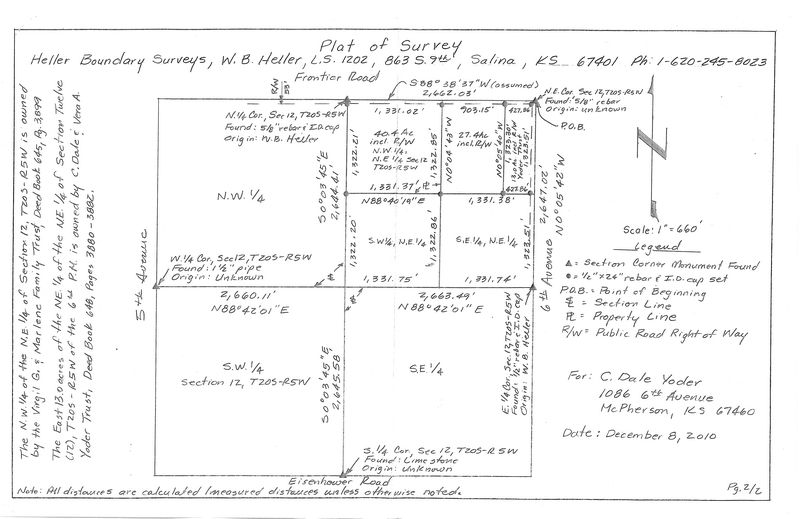 Plat of Survey
Heller Boundary Surveys, W. B. Heller, L.S. 1202, 863 S. 9th, Salina, KS 67401 Ph: 1-620-245-8023
Frontier Road
R/W
33'
S 88° 38' 37" W (assumed)
2,662.03'
N. 1/4 Cor, Sec 12, T20S-R5W
Found: 5/8" rebar & I.D. cap
Origin: W.B. Heller
N.E. Cor. Sec 12, T20S-R5W
Found: 5/8" rebar
Origin: Unknown
P.O.B.
1,331.02'
903.15'
427.86'
40.4 Ac
incl. R/W
N.W. 1/4,
N.E. 1/4 Sec 12
T20S-R5W
27.4 Ac
incl. R/W
1,322.21'
1,322.85'
N0°04'43"W
N0°05'40"W
1,323.30'
13.0 Ac incl. R/W
Yoder Trust
1,323.51'
N.W. 1/4
S0°03'45"E
2,644.41'
1,331.37'
PL
N88°40'19"E
1,331.38'
427.86'
1,322.20'
1,322.86'
1,323.51'
S.W. 1/4, N.E. 1/4
S.E. 1/4, N.E. 1/4
2,647.02'
N0°05'42"W
6th Avenue
5th Avenue
W. 1/4 Cor, Sec 12, T20S-R5W
Found: 1 1/2" pipe
Origin: Unknown
1,331.75'
1,331.74'
2,660.11'
N88°42'01"E
2,663.49'
N88°42'01"E
E. 1/4 Cor, Sec 12, T20S-R5W
Found: 1/2" rebar & I.D. cap
Origin: W. B. Heller
S.W. 1/4
Section 12, T20S-R5W
S0°03'45"E
2,645.58'
S.E. 1/4
S. 1/4 Cor, Sec 12, T20S-R5W
Found: Limestone
Origin: Unknown
Eisenhower Road
Note: All distances are calculated / measured distances unless otherwise noted.
The N.W. 1/4 of the N.E. 1/4 of Section 12, T20S-R5W is owned
by the Virgil G. & Marlene Family Trust, Deed Book 645, Pg. 3899
The East 13.0 acres of the N.E. 1/4 of the N.E. 1/4 of Section Twelve
(12), T20S-R5W of the 6th P.M. is owned by C. Dale & Vera A.
Yoder Trust, Deed Book 648, Pages 3880-3882.
N
Scale: 1" = 660'
Legend
▲ = Section Corner Monument Found
● = 1/2" x 24" rebar & I.D. cap set
P.O.B. = Point of Beginning
SL = Section Line
PL = Property Line
R/W = Public Road Right of Way
For: C. Dale Yoder
1086 6th Avenue
McPherson, KS 67460
Date: December 8, 2010
Pg. 2/2